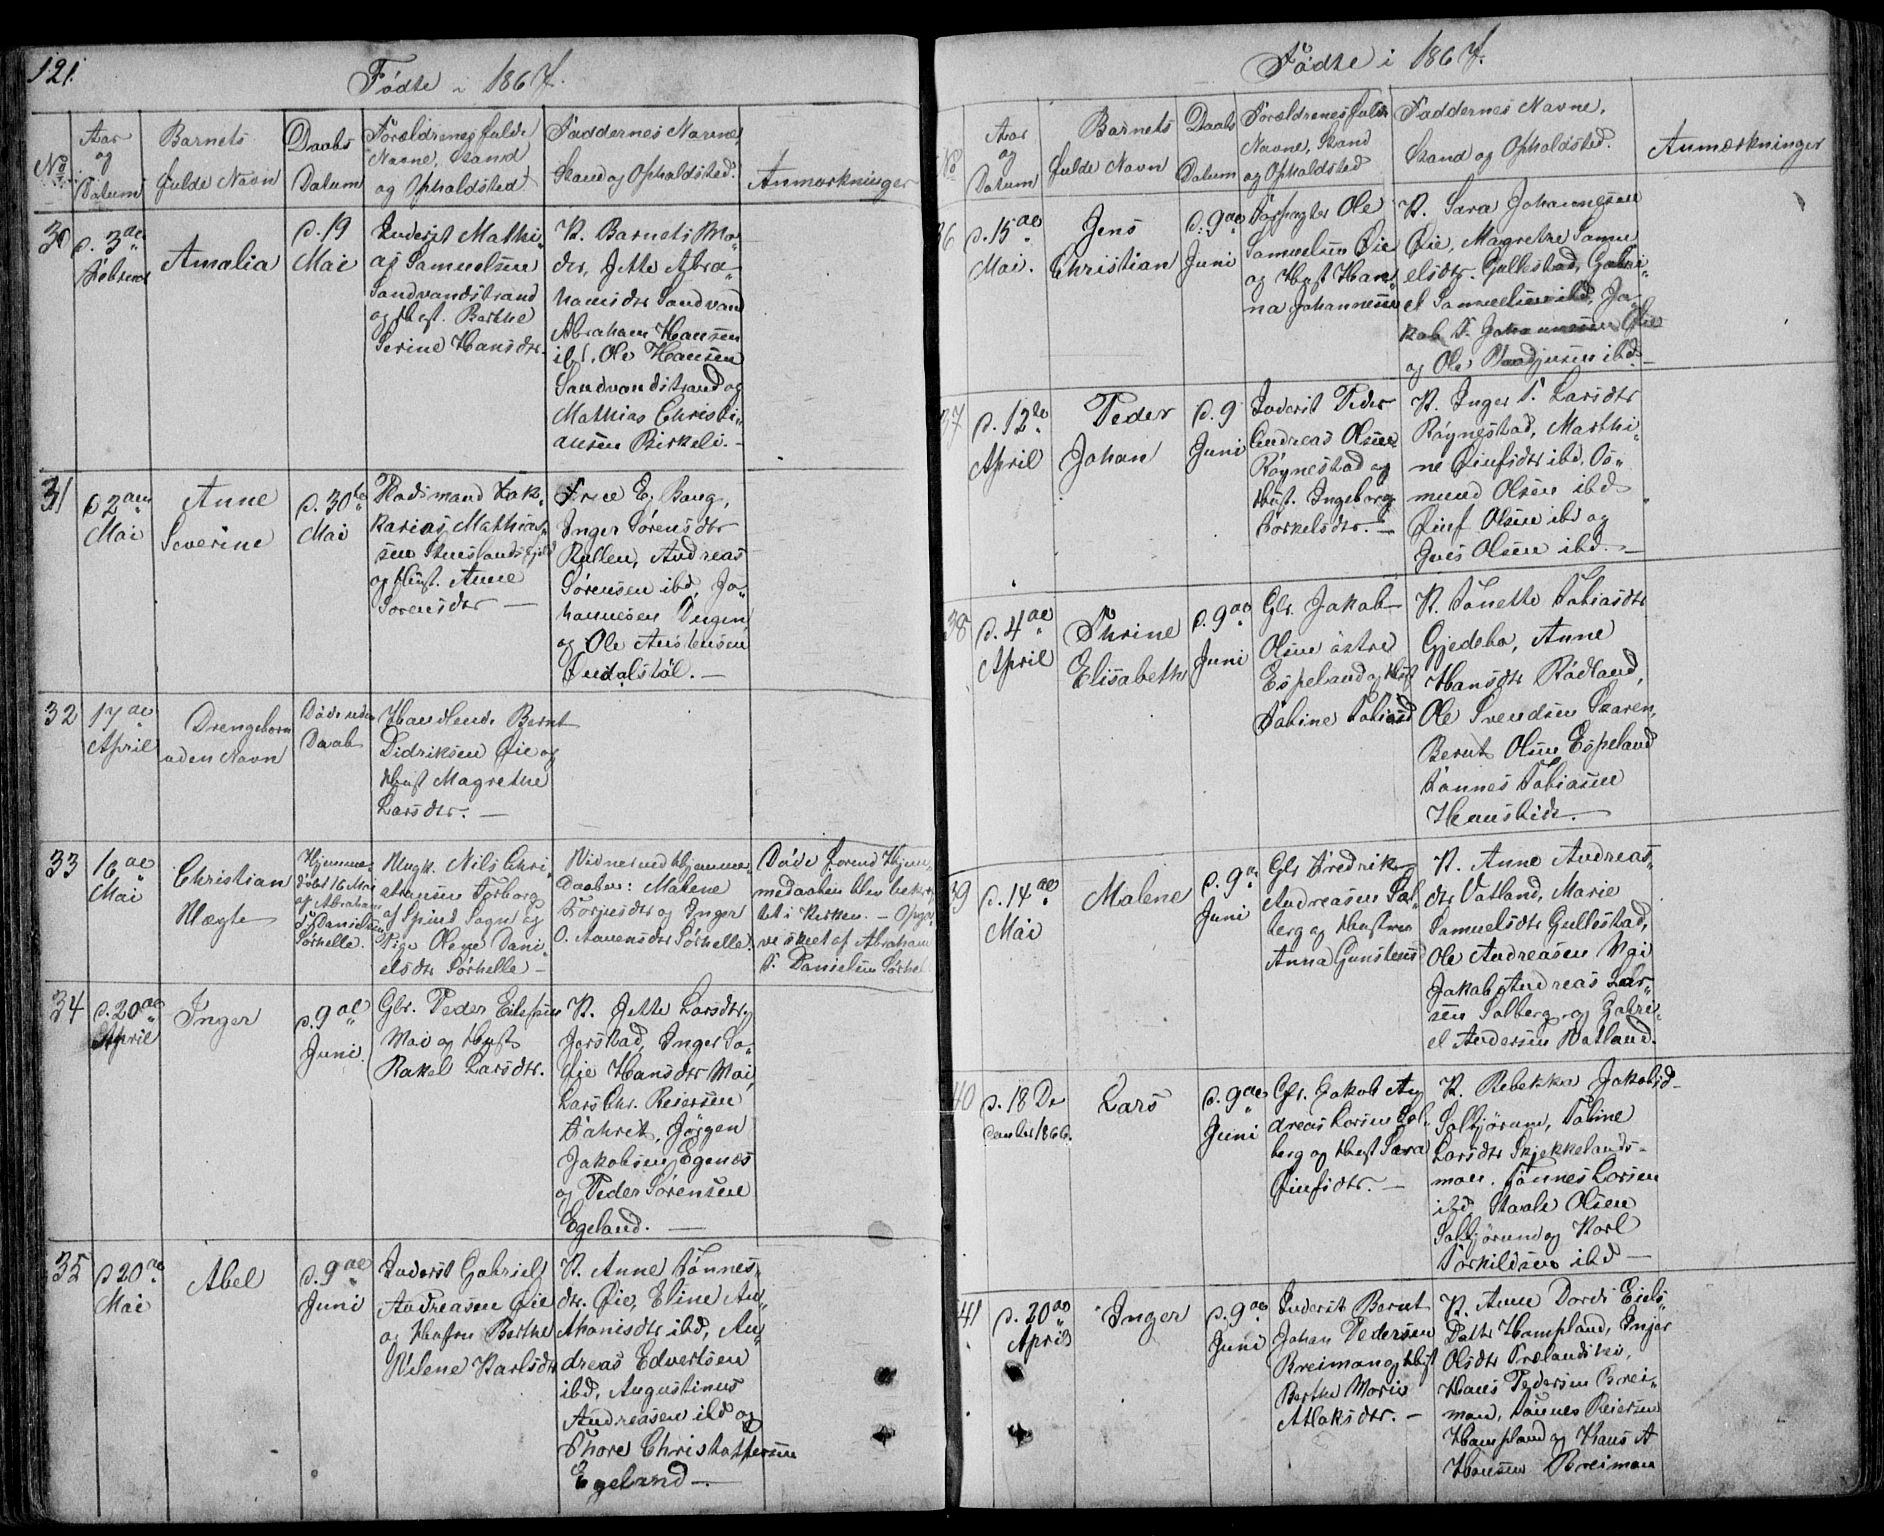 121.
Födte - 1867.
No
Aar
og
Datum
Barnets
fulde Navn
Daabs
Datum
Forældrenes fulde
Navne, Stand
og Opholdsted
Faddernes Navne,
Stand og Opholdsted.
Anmærkninger
30
d. 3die
Februar
Amalia
d. 19
Mai
Inderst Mathi-
as Samuelsen
Sandvandstrand
og Hust. Berthe
Serine Hansdtr.
K. Barnets Mo-
der, Jette Abra-
hamsdtr Sandvand
Abraham Hansen
ibd, Ole Hansen
Sandvandstrand og
Mathias Christi-
ansen Birkeli. -
31
d 2den
Mai
Anne
Severine
d. 30te
Mai
Pladsmand Zak-
karias Mathias-
sen
og Hust. Anne
Sorensdtr -
Frue E. Bang,
Inger Sörensdtr
Rullen, Andreas
Sörensen ibd, Jo-
hannesen
og Ole Austensen
32
17de
April
Drengebarn
uden Navn
Döde uden
Daab
Handlende Bernt
Didriksen Öie og
Hust Magrethe
Larsdtr. -
33
16de
Mai
Christian
Hjemme-
döbt 16 Mai
af Abraham
T. Danielsen
Sörhelle.
Ungk. Nils Chri-
stensen
af Spind Sogn og
Pige Olene Dani-
elsdtr Sörhelle -
Vidner ved Hjemme
Daaben: Malene
og Inger
O. Sörhelle.
Döde forend Hjem-
medaaben blev bekræf-
tet i Kirken. - Opga-
ve skeet af Abraham
T. Danielsen Sörhel
34
d. 20de
April
Inger
d. 9de
Juni.
Gbr. Peder Eilefsen
Moi og Hust
Rakel Larsdtr.
K. Jette Larsdtr
Jerstad, Inger So-
fie Hansdtr Moi,
Lars Chr. Reiersen
Jörgen
Jakobsen Egenes
og Peder Sörensen
Egeland. -
35
d 20de
Mai
Abel
d. 9de
Juni
Inderst Gabriel
Andreasen Öie
og Hustru Berthe
Vilene Karlsdtr
K. Anne Tönnes-
dtr. Öie, Eline An-
thonisdtr ibd, An-
dreas Edvertsen
ibd, Augustinus
Andreasen ibd og
Thore Christoffersen
Egeland -.
Födte i 1867.
No
Aar
og
Datum
Barnets
fulde Navn
Daabs
Datum
Forældrenes fulde
Navne, Stand
og Opholdsted
Faddernes Navne,
Stand og Opholdsted.
Anmærkninger
36
d. 15de
Mai.
Jens
Christian
d. 9de
Juni
Forpagter Ole
Samuelsen Öie
og Hust Han-
na Johannesen
K. Sara Johannesen
Öie, Magrethe Samu-
elsdtr. Gullestad, Gabri-
el Samuelsen ibd, Ja-
kob T. Johannessen Öie
og Ole ibd -
37
d. 12te
April
Peder
Johan
d. 9
Juni
Inderst Peder
Andreas Olsen
Röynestad og
Hust. Ingeborg
Torkelsdtr. -
K. Inger T. Larsdtr
Röynestad, Marthi-
ne ibd, Os-
mund Olsen ibd
Olsen ibd og
Olsen ibd. -
38
d. 4de
April
Thrine
Elisabeth
d. 9de
Juni
Gbr. Jakob
Olsen östre
Espeland og Hust
Tobine Tobiasd
K. Tonette Tobiasdtr
Gjedebo, Anne
Hansdtr Rödland,
Ole Svendsen Skaren,
Bernt Olsen Espeland
Tönnes Tobiasen
39
d. 14de
Mai
Malene
d. 9de
Juni
Gbr Fredrik
Andreasen Sol-
berg og Hustru
Anna Gunstensd
K. Anne Andreas-
dtr Vatland, Marie
Samuelsdtr Gullestad,
Ole Andreasen Moi
Jakob Andreas Lar-
sen Solberg og Gabri-
el Andersen Vatland.
40
d. 18 De
cember 1866.
Lars
d. 9de
Juni
Gbr. Jakob An
dreas Larsen Sol-
berg og Hust Sara
K. Rebekka Jakobsd-
Tobine
Larsdtr Skjekkelands-
moen. Tönnes Larsen
ibd, Staale Olsen
og Karl
Torkildsen ibd -
41
d. 20de
April
Inger
d. 9de
Juni
Inderst Bernt
Johan Pedersen
Breimon og Hust
Berthe Marie
Atlaksdtr. -
K. Anne Dorte Eiels-
Datter Hompland, Inger
Olsdtr
Hans Pedersen Brei-
mon, Tönnes Reiersen
Hompland og Hans A
Hansen Breimon